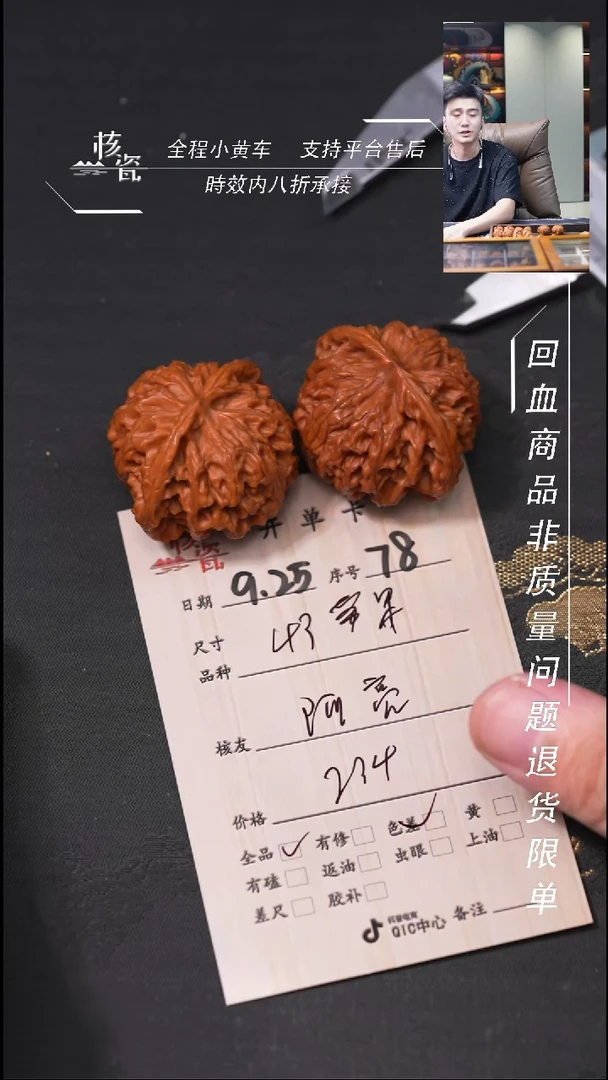 核瓷
全程小黄车 支持平台售后
時效内八折承接
回血商品非质量问题退货限单
开单卡
核瓷
日期 9.25 序号 78
尺寸 43
品种
核友 阿亮
价格 234
全品 有修 色差 黄
有磕 返油 虫眼 上油
差尺 胶补
抖音电商
QIC中心 备注